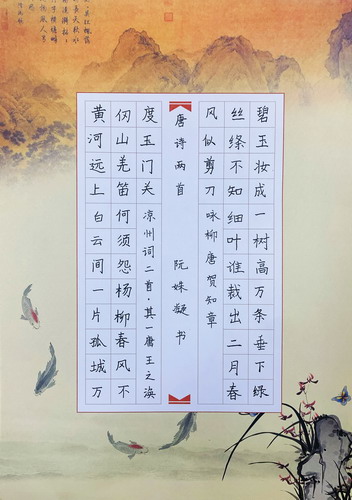 碧玉妆成一树高万条垂下绿
丝绦不知细叶谁裁出二月春
风似剪刀 咏柳唐贺知章
唐诗两首 阮姝凝 书
黄河远上白云间一片孤城万
仞山羌笛何须怨杨柳春风不
度玉门关 凉州词二首·其一唐王之涣